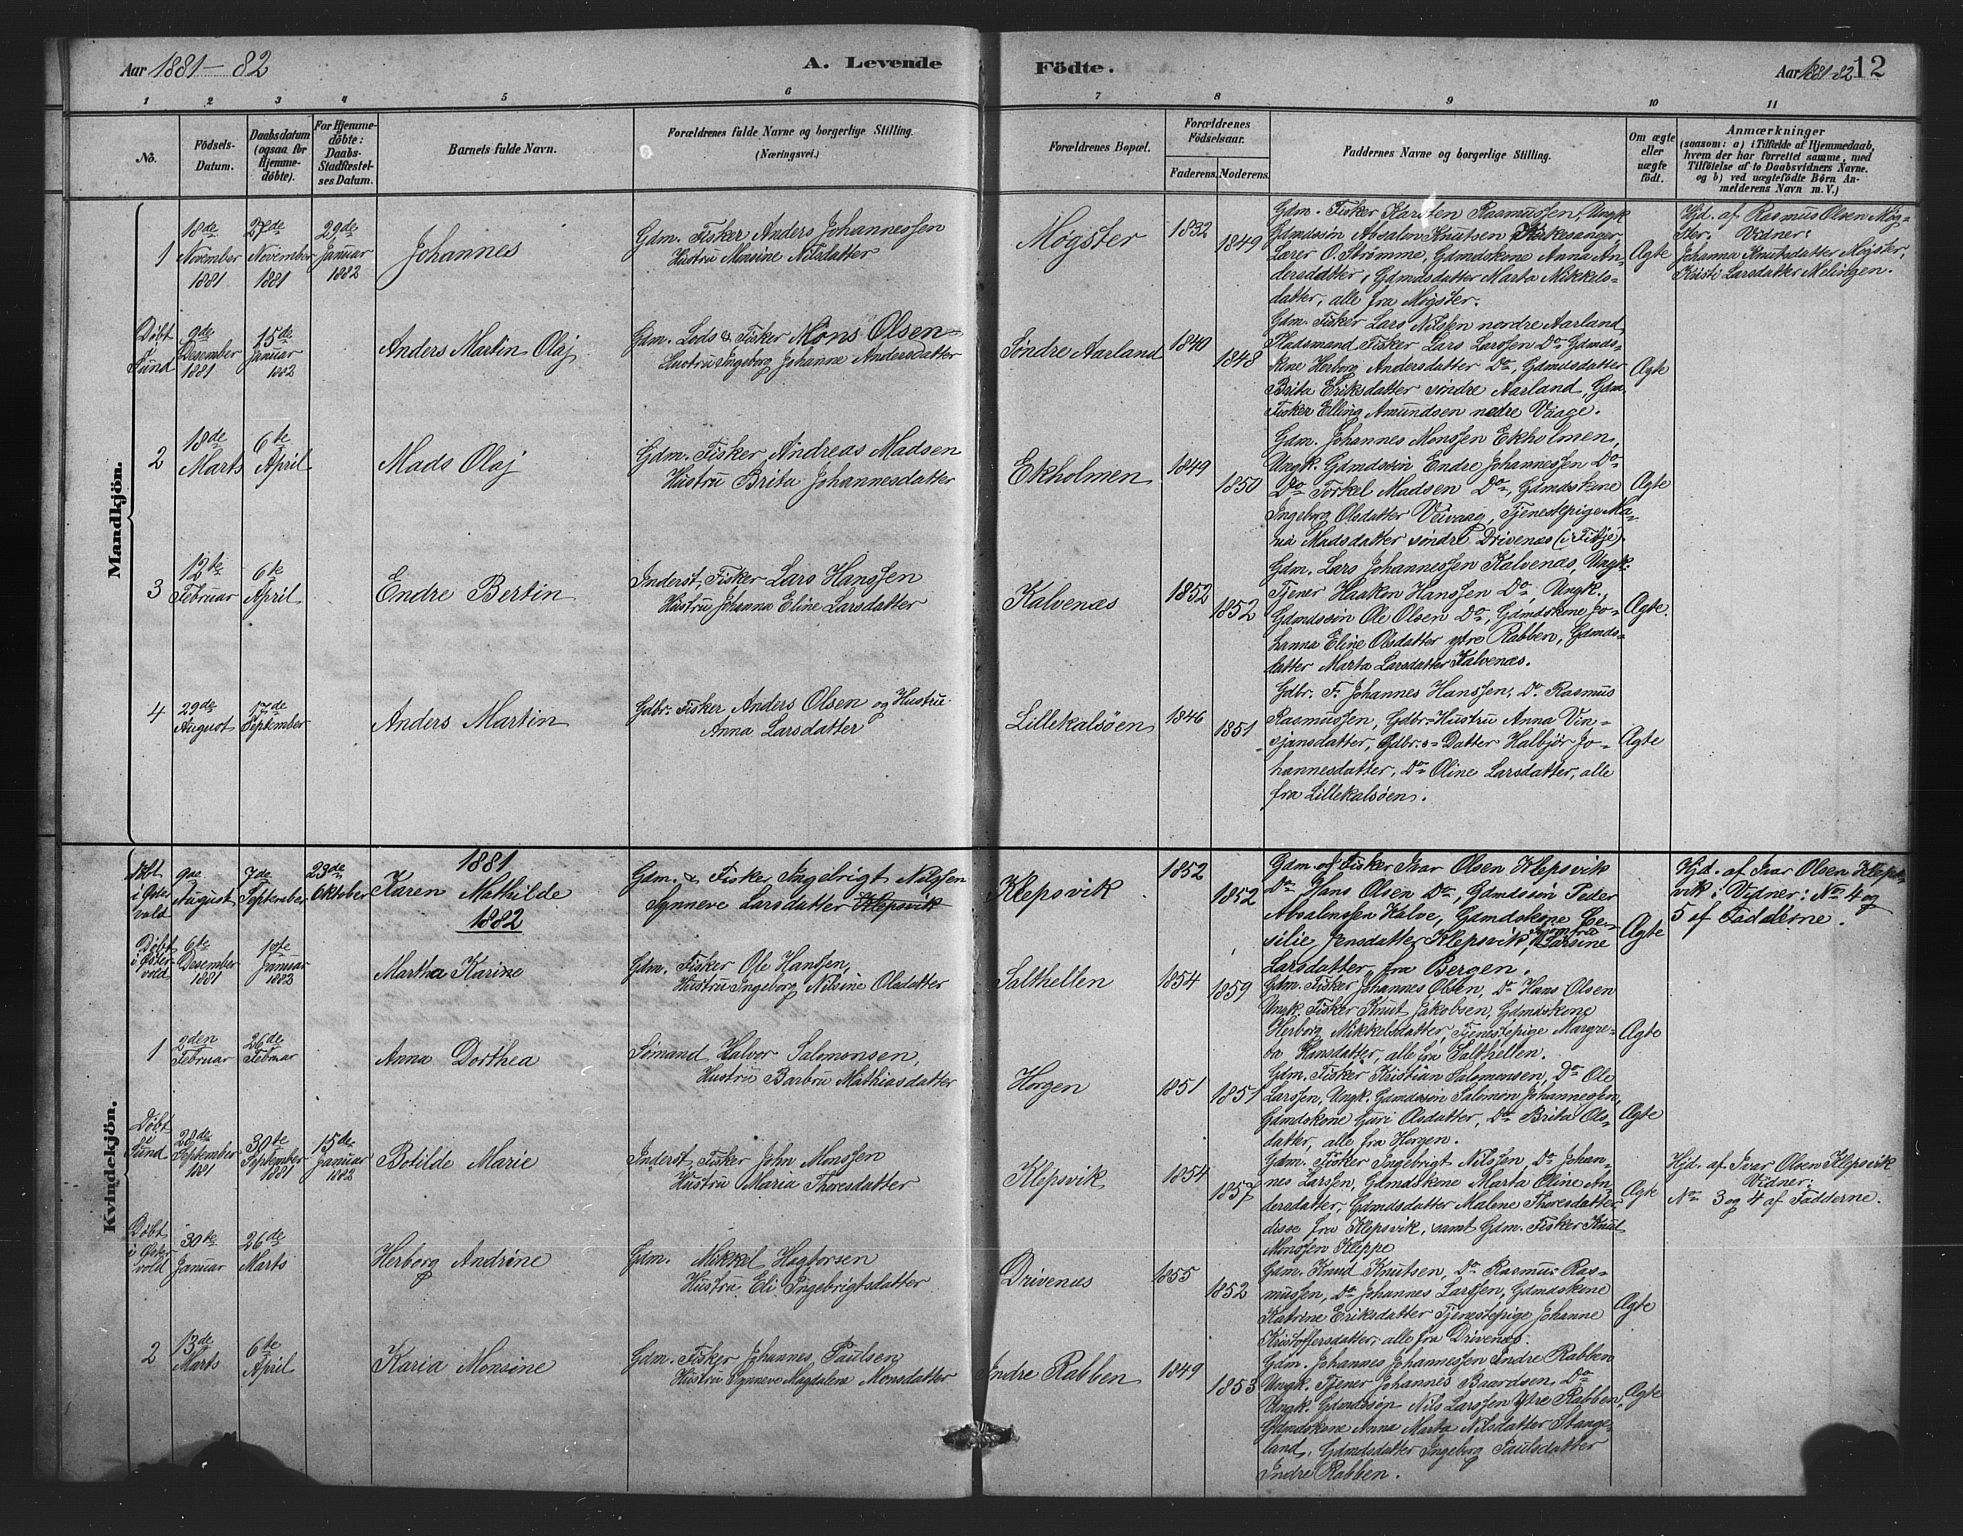 Aar 1881-82
A. Levende Födte.
Aar 1881-82 12
1 2 3 4 5 6 7 8 9 10 11
No.
Födsels-
Datum.
Daabsdatum
(ogsaa for
Hjemme-
döbte).
For Hjemme-
döbte:
Daabs-
Stadfæstel-
ses Datum.
Barnets fulde Navn.
Forældrenes fulde Navne og borgerlige Stilling.
(Næringsvei.)
Forældrenes Bopæl.
Forældrenes
Födselsaar.
Faderens. Moderens.
Faddernes Navne og borgerlige Stilling.
Om ægte
eller
uægte
födt.
Anmærkninger
(saasom: a) i Tilfælde af Hjemmedaab,
hvem der har forrettet samme, med
Tilföielse af to Daabsvidners Navne,
og b) ved uægtefödte Börn An-
melderens Navn m. V.)
Mandkjön.
1
18de
November
1881
27de
November
1881
29de
Januar
1882
Johannes
Gdm. Fisker Anders Johannessen
Hustru Monsine Nilsdatter
Møgster
1832
1849
Gdm. Fisker Karsten Rasmussen, Ungk
Gdmdssön Absalon Knutsen, Kirkesanger
Lærer O. Strømme, Gdmdskone Anna An-
dersdatter, Gdmdsdatter Marta Mikkels-
datter, alle fra Møgster.
Ægte
Hjd. af Rasmus Olsen Møg-
ster. Vidner:
Johanna Knutsdatter Møgster,
Kristi Larsdatter Melingen.
Døbt
i
Sund
9de
Desember
1881
15de
Januar
1882
Anders Martin Olaj
Gdm. Lods & Fisker Mons Olsen
Hustru Ingeborg Johanne Andersdatter
Søndre Aarland
1840
1848
Gdm. Fisker Lars Nilsen nordre Aarland,
Pladsmand Fisker Lars Larssen Do, Gdmds-
kone Herborg Andersdatter Do, Gdmdsdatter
Brita Eriksdatter söndre Aarland, Gdm.
Fisker Elling Amundsen nedre Vaage.
Ægte
2
18de
Marts
6te
April
Mads Olaj
Gdm. Fisker Andreas Madsen
Hustru Brita Johannesdatter
Ekholmen
1849
1850
Gdm. Johannes Monssen Ekholmen,
Ungk. Gdmdssön Endre Johannessen Do
Do Torkel Madsen Do, Gdmdskone
Ingeborg Olsdatter Veivaag, Tjenestepige Ma-
ria Madsdatter söndre Drivenæs (i Fitje).
Ægte
3
12te
Februar
6te
April
Endre Bertin
Inderst, Fisker Lars Hanssen
Hustru Johanna Eline Larsdatter
Kalvenæs
1852
1852
Gdm. Lars Johannessen Kalvenæs, Ungk.
Tjener Haaken Hanssen Do, Ungk.,
Gdmdssön Ole Olsen Do, Gdmdskone Jo-
hanna Eline Olsdatter ytre Rabben, Gdmds-
datter Marta Larsdatter Kalvenæs.
Ægte
4
29de
August
17de
September
Anders Martin
Gdbr. Fisker Anders Olsen og Hustru
Anna Larsdatter
Lillekalsöen
1846
1851
Gdbr. F. Johannes Hanssen, Do Rasmus
Rasmussen, Gdbr. Hustru Anna Vin-
sjansdatter, Gdbr.s Datter Halbjör Jo-
hannesdatter, Do Oline Larsdatter, alle
fra Lillekalsöen.
Ægte
Kvindekjön.
Døbt
i Øster
vold
9de
August
7de
September
23de
Oktober
1881
Karen Mathilde
1882
Gdm. & Fisker Ingebrigt Nilssen
Synneve Larsdatter Klepsvik
Klepsvik
1852
1852
Gdm. og Fisker Ivar Olsen Klepsvik
Do Hans Olsen Do, Gdmdssön Peder
Absalonssen Kalve, Gdmdskone Ce-
silie Jensdatter Klepsvik, Larsine
Larsdatter fra Bergen.
Ægte
Hjd. af Ivar Olsen Kleps-
vik: Vidner: No 4 og
5 af Fadderne.
Døbt
i Øster
vold
6te
Desember
1881
Januar
Martha Karine
Gdm. Fisker Ole Hanssen,
Hustru Ingeborg Nilsine Olsdatter
Salthellen
1854
1859
Gdm. Fisker Johannes Olsen, Do Hans Olsen
Ungk. Fisker Knut Jakobsen, Gdmdskone
Herborg Mikkelsdatter, Tjenestepige Margre-
ta Hansdatter, alle fra Salthellen.
Ægte
1
2den
Februar
26de
Februar
Anna Dorthea
Sömand Halvor Salomonsen,
Hustru Barbru Mathiasdatter
Horgen
1851
1851
Gdm. Fisker Kristian Salomonsen, Do Ole
Larssen, Ungk. Gdmdssön Salomon Johannessen,
Gdmdskone Guri Olsdatter, Do Brita Ols-
datter, alle fra Horgen.
Ægte
Døbt
i
Sund
28de
September
1881
30te
September
1881
15de
Januar
1882
Botilde Marie
Inderst, Fisker John Monssen
Hustru Maria Thoresdatter
Klepsvik
1854
1857
Gdm. Fisker Ingebrigt Nilssen, Do Johan-
nes Larssen, Gdmdskone Marta Oline An-
dersdatter, Gdmdsdatter Malene Thoresdatter,
disse fra Klepsvik, samt Gdm. Fisker Knut
Monssen Kleppe
Ægte
Hjd. af Ivar Olsen Klepsvik
Vidner:
No 3 og 4 af Fadderne.
Døbt
i Øster
vold
30te
Januar
26de
Marts
Herborg Andrine
Gdm. Mikkel Hagtorsen
Hustru Eli Ingebrigtsdatter
Drivenæs
1855
1852
Gdm. Knud Knutsen, Do Rasmus Ras-
mussen, Do Johannes Larssen, Gdmdskone
Katrine Eriksdatter Tjenestepige Johanne
Kristoffersdatter, alle fra Drivenæs.
Ægte
2
13de
Marts
6te
April
Karia Monsine
Gdm. Fisker Johannes Paulsen
Hustru Synneve Magdalena Monsdatter
Indre Rabben
1849
1853
Gdm. Johannes Johannessen Indre Rabben
Ungk. Tjener Johannes Baardsen, Do
Ungk. Gdmdssön Nils Larssen Ytre Rabben,
Gdmdskone Anna Marta Nilsdatter Stange-
land, Gdmdsdatter Ingeborg Paulsdatter
Indre Rabben.
Ægte